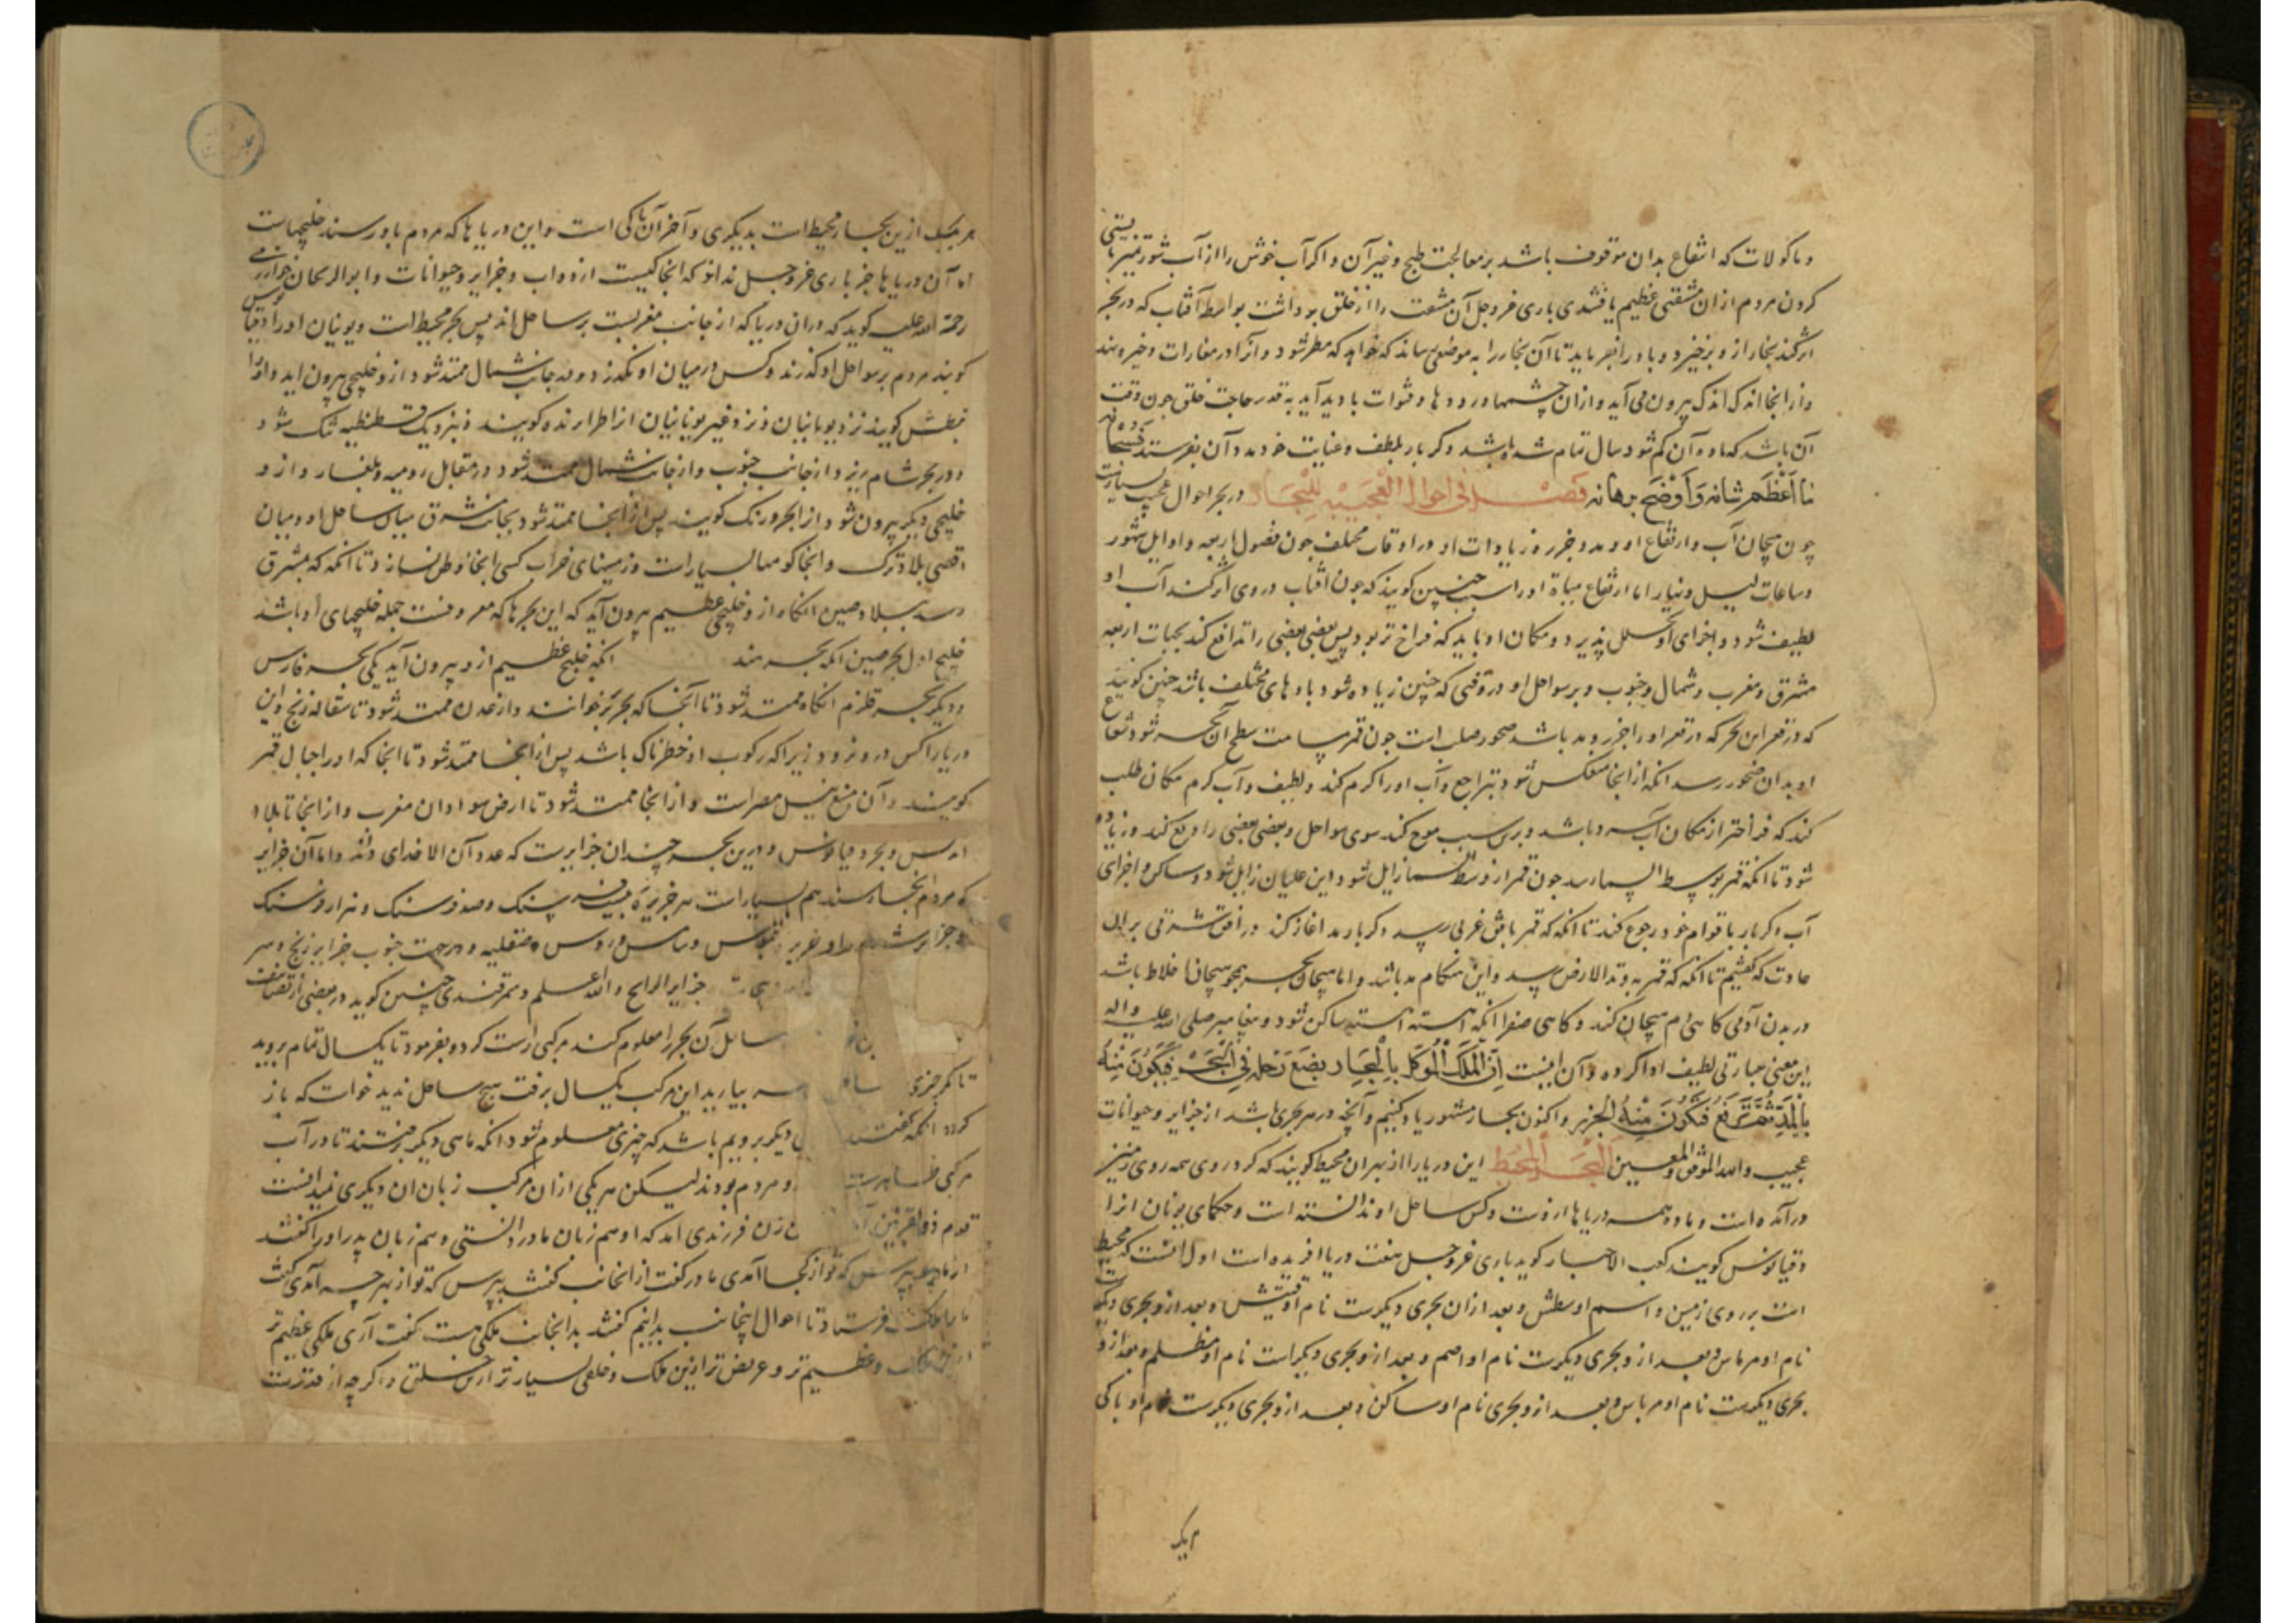 و ماکولات که انتفاع بدان موقوف باشد بر معالجت طبخ و غیر آن و اکر آب خوش را از آب شور تمییز بایستی
کردن مردم از ان مشقتی عظیم یافتندی باری عز و جل آن مشقت را از خلق برداشت بواسطه آفتاب که در بحر
اثر کند بخار از و برخیزد و باد را بفرماید تا آن بخار را به موضعی رساند که خواهد که مطر شود و آنرا در مغارات ذخیره نهد
و از انجا اندک اندک بیرون می آید و از ان چشمها و رودها و قنوات بادید آید به قدر حاجت خلق چون وقت
آن باشد که ماده آن کم شود سال تمام شده باشد دکر بار بلطف و عنایت خود مدد آن بفرستد فسبحانه
ما اعظم شانه و اوضح برهانه فصل فی احوال العجیبه للبحار در بحر احوال عجیب بسیارست
چون هیجان آب و ارتفاع او و مد و جزر و زیادات او در اوقات مختلف چون فصول اربعه و اوایل شهور
و ساعات لیل و نهار اما ارتفاع میاه او را سبب چنین کویند که چون آفتاب در وی اثر کند آب او
لطیف شود و اجزای او تحلل پذیرد و مکان او باید که فراخ تر بود پس بعضی بعضی را تدافع کند بجهات اربعه
مشرق و مغرب و شمال و جنوب و بر سواحل او در وقتی که چنین زیاده شود بادهای مختلف باشد چنین کویند
که در قعر این بحر که در قعر او را جزر و مد باشد صخور صلب است چون قمر مسامت سطح آن بحر شود شعاع
او بدان صخور رسد آنکه از انجا منعکس شود بتراجع و آب او را کرم کند و لطیف و آب کرم مکان طلب
کند که فراختر از مکان آب سرد باشد و بدین سبب موج کند سوی سواحل و بعضی بعضی را دفع کند و زیاده
شود تا آنکه قمر بوسط السما رسد چون قمر از وسط السما زایل شود و این غلیان زایل شود و ساکن و اجزای
آب دکر بار با قوام خود رجوع کند تا آنکه که قمر بافق غربی رسد دکر بار مد اغاز کند و در افق شرقی بر ان
عادت که کفتیم تا آنکه که قمر به وتد الارض رسد و این هنکام مد باشد و اما هیجان بحر همچو هیجان اخلاط باشد
در بدن آدمی کاهی دم هیجان کند و کاهی صفرا آنکه آهسته آهسته ساکن شود و پیغامبر صلی الله علیه و اله
این معنی عبارتی لطیف ادا کرده و آن اینست ان الملک الموکل بالبحار یضع رجله فی البحر فیکون منه
بالمد ثم یرفع فیکون منه الجزر و اکنون بحار مشهور یاد کنیم و آنچه در هر بحری باشد از جزایر و حیوانات
عجیب والله الموفق والمعین البحر المحیط این دریا را از بهر ان محیط کویند که کرد روی همه روی زمین
درآمده است و ماده همه دریاها از وست و کس ساحل او ندانسته است و حکمای یونان انرا
وقیانوس کویند کعب الاحبار کوید باری عز و جل هفت دریا افریده است اول انست که محیط
است بر روی زمین و اسم او بنطش و بعد از ان بحری دیکرست نام او قبیش و بعد از و بحری دیکر
نام او مرماس و بعد از و بحری دیکرست نام او اصم و بعد از و بحری دیکر است نام او مظلم و بعد از و
بحری دیکرست نام او مرباس و بعد از و بحری نام او ساکن و بعد از و بحری دیکرست نام او باکی
هر یکی
از ین بحار محیط است بدیکری و آخر آن باکی است و این دریاها که مردم باو رسند خلیجهاست
آن دریاها جز باری عز و جل نداند که انجا کیست از دواب و جزایر و حیوانات و ابو الریحان خوارزمی
رحمة الله علیه کوید که در ان دریا که از جانب مغربست بر ساحل اندلس بحر محیط است و یونیان او را وقیانوس
کویند مردم بر سواحل او کذرند و کس در میان او نکذرد و در جانب شمال ممتد شود از و خلیجی بیرون آید و او را
نیطش کویند نزد یونانیان و نزد غیر یونانیان از اطرابزنده کویند و نزدیک قسطنطیه تنک شود
و در بحر شام ریزد از جانب جنوب و از جانب شمال ممتد شود در مقابل رومیه و بلغار و از و
خلیجی دیکر بیرون شود از ابحر ورنک کویند پس از آنجا ممتد شود بجانب مشرق میان ساحل او و میان
اقصی بلاد ترک و انجا کوهها بسیار است و زمینهای خراب کسی انجا وطن نسازد تا انکه که بمشرق
رسد ببلاد صین آنکاه از و خلیجی عظیم بیرون آید که این بحرها که معروفست جمله خلیجهای او باشد
خلیج اول بحر صین آنکه بحر هند آنکه خلیج عظیم از و بیرون آید یکی بحر فارس
و دیکر بحر قلزم آنکاه ممتد شود تا آنجا که بحر بربر خوانند و از عدن ممتد شود تا سفاله زنج و این
دریا را کس در و نرود زیرا که رکوب او خطرناک باشد پس از انجا ممتد شود تا انجا که او را جبال قمر
کویند و آن منبع نیل مصر است و از انجا ممتد شود تا ارض سوادان مغرب و از انجا تا بلاد
اندلس و بحر وقیانوس و درین بحر چندان جزایرست که عدد آن الا خدای داند و اما آن جزایر
که مردم انجا رسند هم بسیار است هر جزیره بیست فرسنک و صد فرسنک و هزار فرسنک
و جزایر قبرس و ساس و رودس و صقلیه و در جهت جنوب جزایر زنج و سر
جزایر الرایح والله اعلم و سمرقندی چنین کوید در بعضی از تصنیفات
ساحل آن بحر را معلوم کند مرکبی راست کرد و بفرمود تا یکسال تمام بروید
تا مکر خبری بیارید این مرکب یکسال برفت هیچ ساحل ندید خواست که باز
کردد آنکه کفت دیکر برویم باشد که چیزی معلوم شود آنکه ماهی دیکر برفتند تا در آب
مرکبی و مردم بودند لیکن هر یکی از ان مرکب زبان ان دیکری نمیدانست
قوم ذو القرنین زن فرزندی آمد که او هم زبان مادر دانستی و هم زبان پدر او را کفتند
از مادر بپرس که تو از کجا آمدی مادر کفت از انجانب کفتند بپرس که تو از بهر چه آمدی کفت
ما را ملک فرستاد تا احوال اینجانب بدانیم کفتند بدانجانب ملکی هست کفت آری ملکی عظیم تر
از ین ملک و عظیم تر و عریض تر از ین ملک و خلقی بسیار تر و اکر چه از قدرت